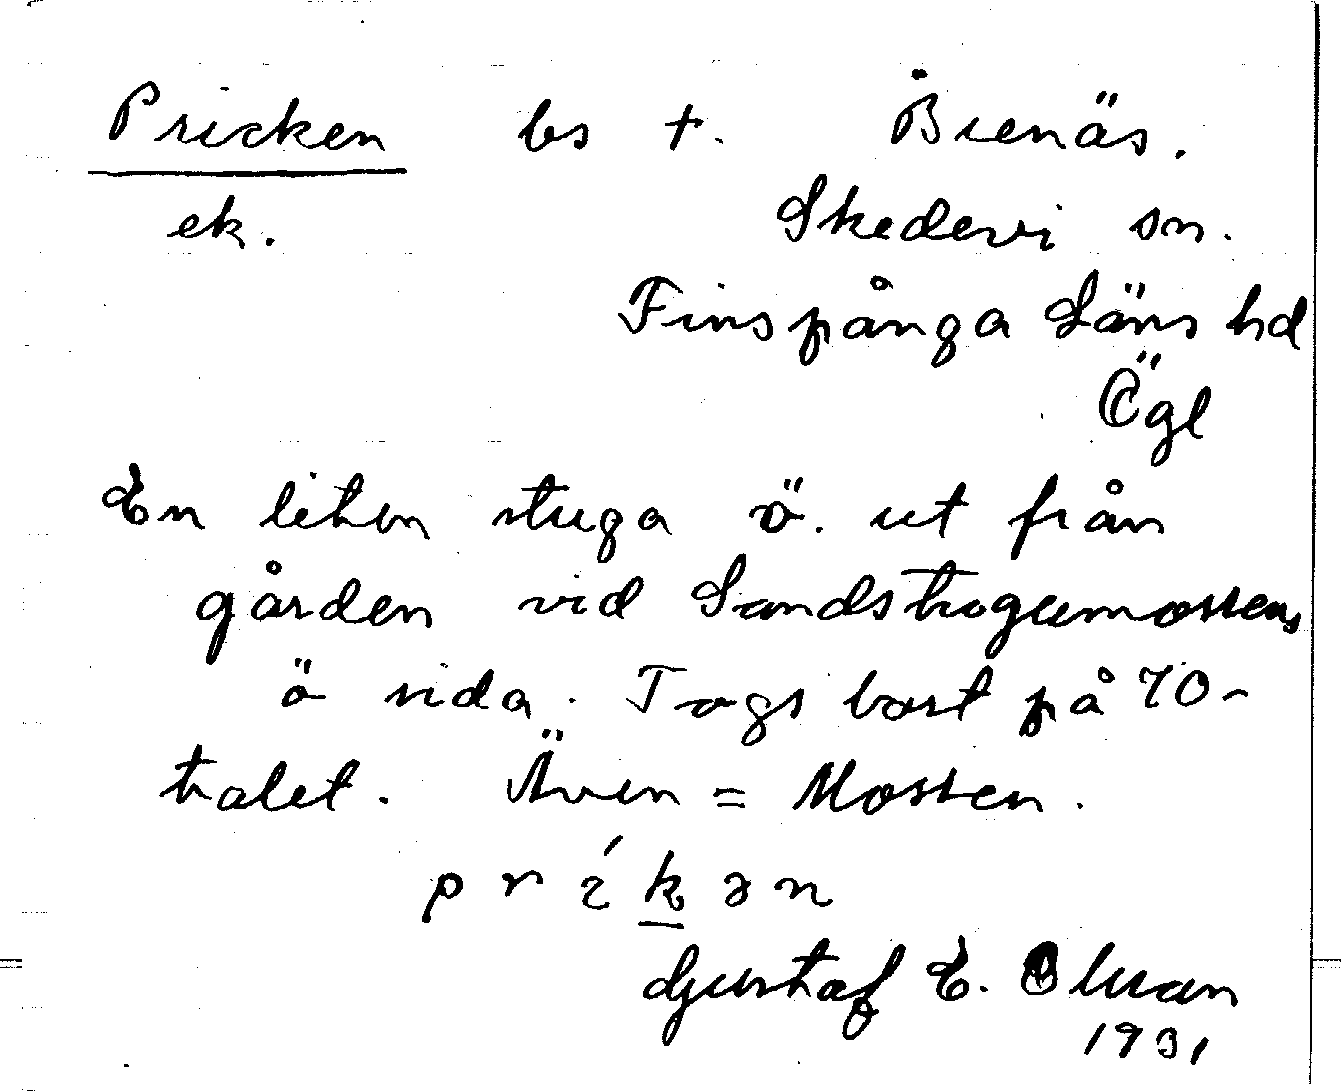 Pricken bs t. Bienäs.
ek. Skedevi sn.
Finspånga Läns hd
Ögl
En liten stuga ö. ut från
gården vid Sandstugumossens
ö sida. Togs bort på 70-
talet. Även = Mossen.
príkən
Gustaf E. Olsson
1931